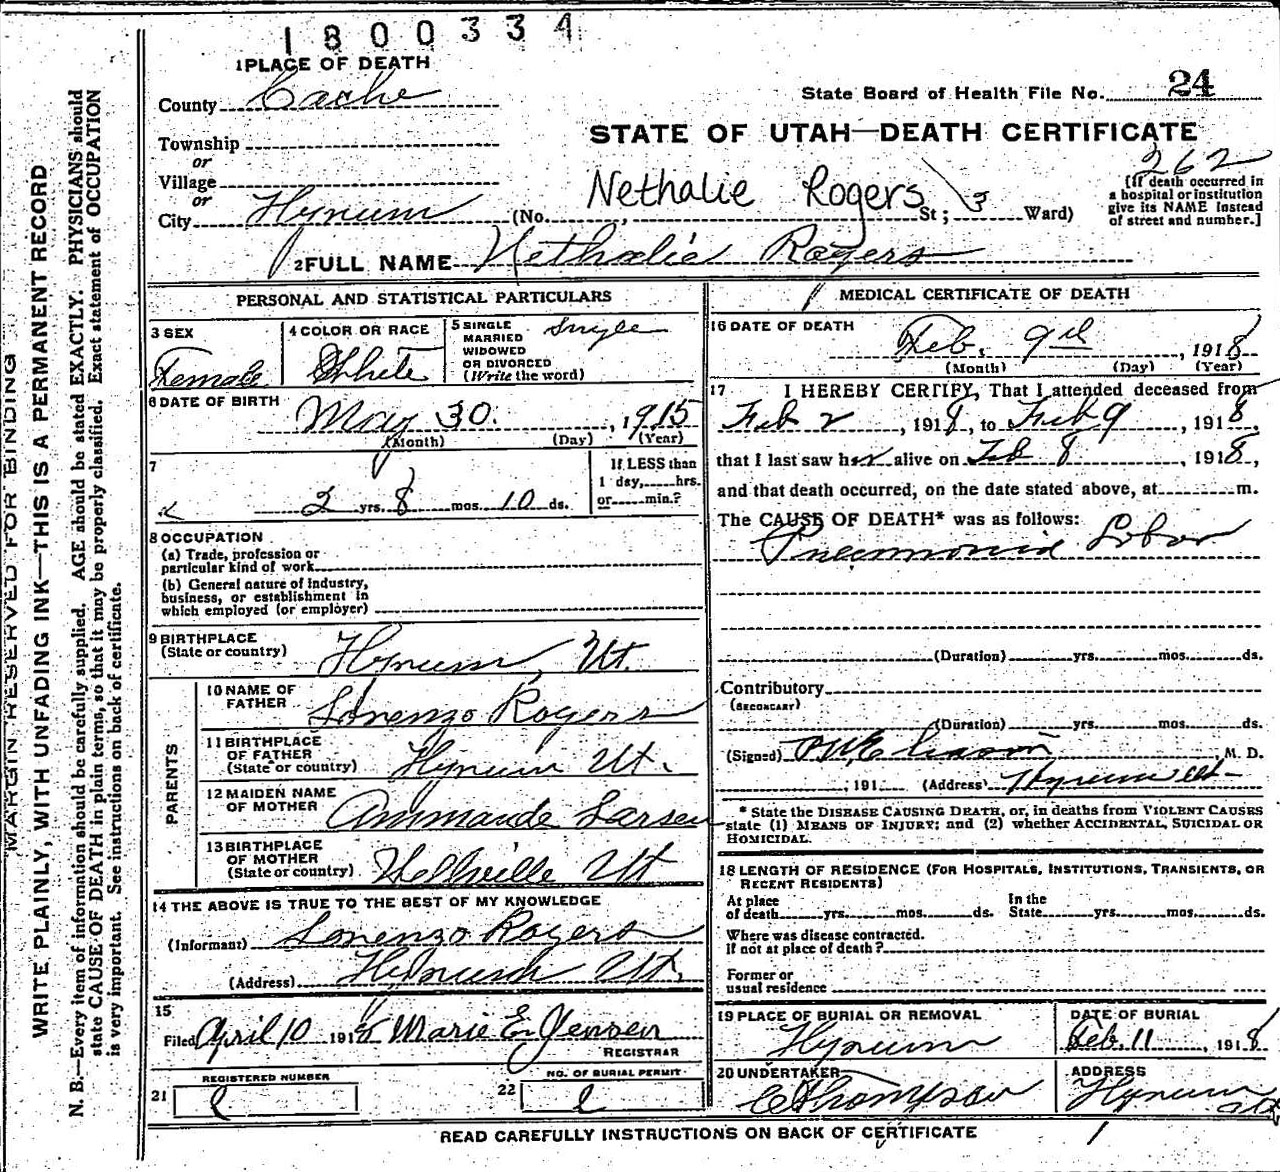 1800334
1 PLACE OF DEATH
County Cache
State Board of Health File No. 24
STATE OF UTAH—DEATH CERTIFICATE
Township
or
Village
or
262
[If death occurred in
a hospital or institution
give its NAME instead
of street and number.]
City Hyrum (No. Nethalie Rogers St; 3 Ward)
2 FULL NAME Nethalie Rogers
PERSONAL AND STATISTICAL PARTICULARS
3 SEX
Female
4 COLOR OR RACE
White
5 SINGLE
MARRIED
WIDOWED
OR DIVORCED
(Write the word)
Single
6 DATE OF BIRTH
May 30. , 1915
(Month) (Day) (Year)
7
2 yrs. 8 mos. 10 ds.
If LESS than
1 day, hrs.
or min.?
8 OCCUPATION
(a) Trade, profession or
particular kind of work
(b) General nature of industry,
business, or establishment in
which employed (or employer)
9 BIRTHPLACE
(State or country) Hyrum, Ut.
PARENTS
10 NAME OF
FATHER Lorenzo Rogers
11 BIRTHPLACE
OF FATHER
(State or country) Hyrum Ut.
12 MAIDEN NAME
OF MOTHER Ammande Larsen
13 BIRTHPLACE
OF MOTHER
(State or country) Wellville Ut
14 THE ABOVE IS TRUE TO THE BEST OF MY KNOWLEDGE
(Informant) Lorenzo Rogers
(Address) Hyrum Ut.
15
Filed April 10 1918 Marie E Jensen
REGISTRAR
21 REGISTERED NUMBER
22 NO. OF BURIAL PERMIT
MEDICAL CERTIFICATE OF DEATH
16 DATE OF DEATH
Feb. 9th , 1918
(Month) (Day) (Year)
17 I HEREBY CERTIFY, That I attended deceased from
Feb 2 , 1918, to Feb 9 , 1918
that I last saw her alive on Feb 8 , 1918,
and that death occurred, on the date stated above, at m.
The CAUSE OF DEATH* was as follows:
Pneumonia Lobar
(Duration) yrs. mos. ds.
Contributory
(SECONDARY)
(Duration) yrs. mos. ds.
(Signed) , M. D.
, 191 (Address) Hyrum Ut
* State the DISEASE CAUSING DEATH, or, in deaths from VIOLENT CAUSES
state (1) MEANS OF INJURY; and (2) whether ACCIDENTAL, SUICIDAL OR
HOMICIDAL.
18 LENGTH OF RESIDENCE (FOR HOSPITALS, INSTITUTIONS, TRANSIENTS, OR
RECENT RESIDENTS)
At place In the
of death yrs. mos. ds. State yrs. mos. ds.
Where was disease contracted.
If not at place of death?
Former or
usual residence
19 PLACE OF BURIAL OR REMOVAL
Hyrum
DATE OF BURIAL
Feb. 11 , 1918
20 UNDERTAKER
C Thompson
ADDRESS
Hyrum
Ut
READ CAREFULLY INSTRUCTIONS ON BACK OF CERTIFICATE
MARGIN RESERVED FOR BINDING
WRITE PLAINLY, WITH UNFADING INK—THIS IS A PERMANENT RECORD
N. B.—Every item of information should be carefully supplied. AGE should be stated EXACTLY. PHYSICIANS should
state CAUSE OF DEATH in plain terms, so that it may be properly classified. Exact statement of OCCUPATION
is very important. See instructions on back of certificate.